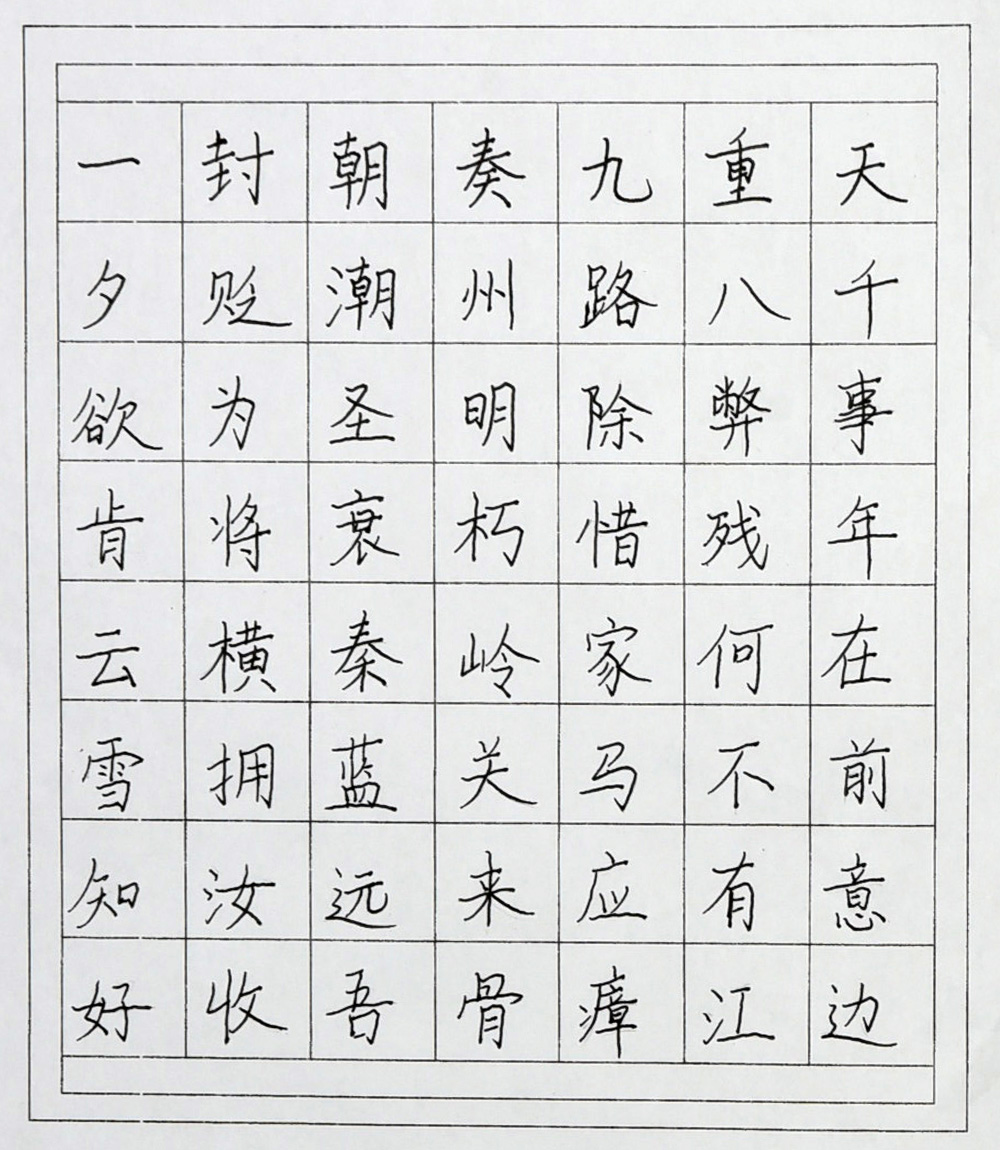 一封朝奏九重天
夕贬潮州路八千
欲为圣明除弊事
肯将衰朽惜残年
云横秦岭家何在
雪拥蓝关马不前
知汝远来应有意
好收吾骨瘴江边